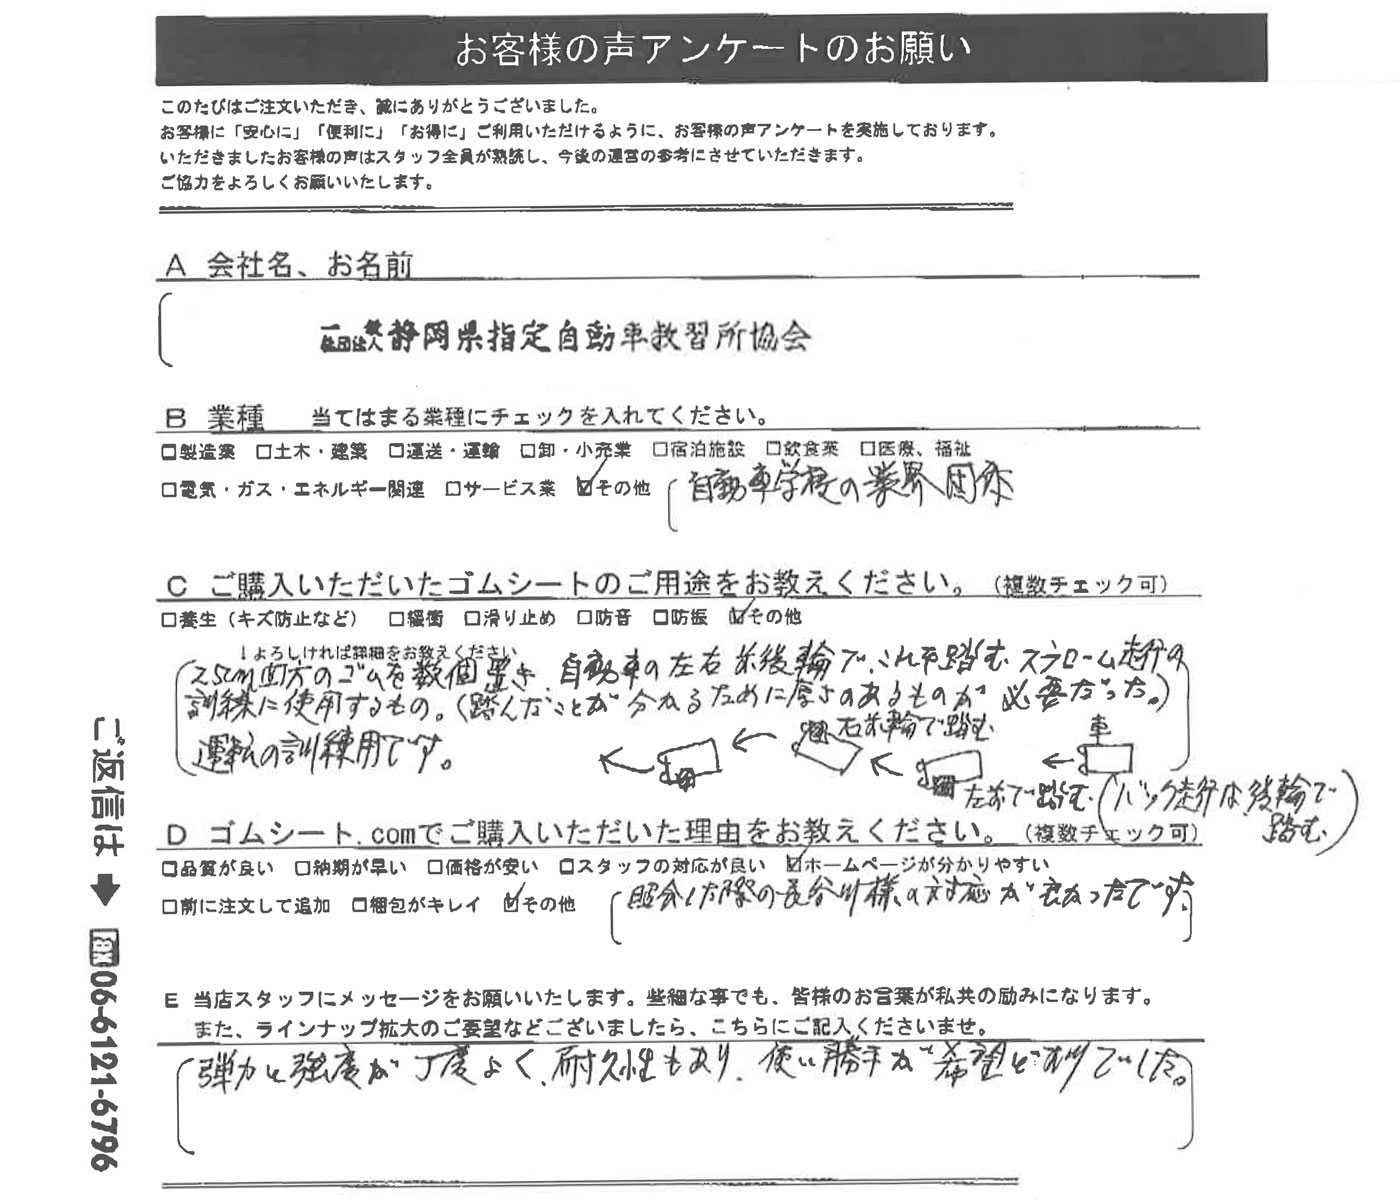 お客様の声アンケートのお願い
このたびはご注文いただき、誠にありがとうございました。
お客様に「安心に」「便利に」「お得に」ご利用いただけるように、お客様の声アンケートを実施しております。
いただきましたお客様の声はスタッフ全員が熟読し、今後の運営の参考にさせていただきます。
ご協力をよろしくお願いいたします。
A 会社名、お名前
一般社団法人 静岡県指定自動車教習所協会
B 業種 当てはまる業種にチェックを入れてください。
□製造業 □土木・建築 □運送・運輸 □卸・小売業 □宿泊施設 □飲食業 □医療、福祉
□電気・ガス・エネルギー関連 □サービス業 ☑その他 (自動車学校の業界団体
C ご購入いただいたゴムシートのご用途をお教えください。(複数チェック可)
□養生(キズ防止など) □緩衝 □滑り止め □防音 □防振 ☑その他
↓よろしければ詳細をお教えください
25cm四方のゴムを数個置き、自動車の左右前後輪で、これを踏むスラローム走行の
訓練に使用するもの。(踏んだことが分かるために厚さのあるものが必要だった。)
運転の訓練用です。
右前輪で踏む
車
左前で踏む (バック走行は後輪で踏む)
D ゴムシート.comでご購入いただいた理由をお教えください。(複数チェック可)
□品質が良い □納期が早い □価格が安い □スタッフの対応が良い ☑ホームページが分かりやすい
□前に注文して追加 □梱包がキレイ ☑その他 (照会した際の長谷川様の対応が良かったです。)
E 当店スタッフにメッセージをお願いいたします。些細な事でも、皆様のお言葉が私共の励みになります。
また、ラインナップ拡大のご要望などございましたら、こちらにご記入くださいませ。
(弾力と強度が丁度よく、耐久性もあり、使い勝手が希望どおりでした。)
ご返信は➡fax06-6121-6796